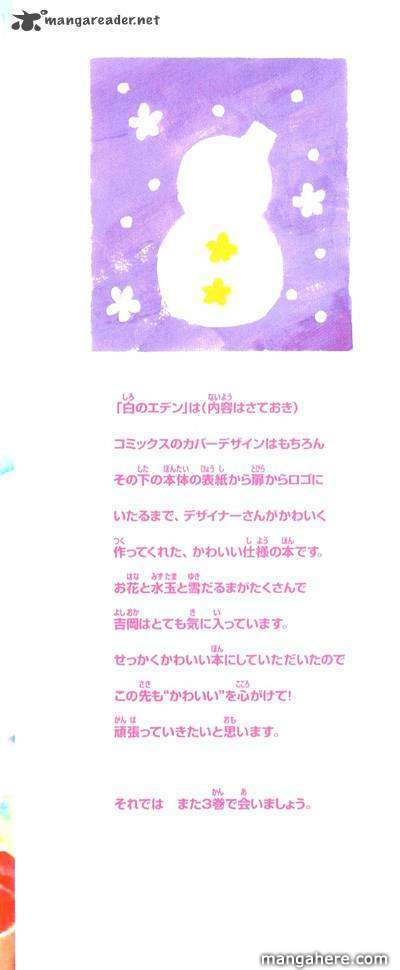 mangareader.net
「白のエデン」は(内容はさておき)
コミックスのカバーデザインはもちろん
その下の本体の表紙から扉からロゴに
いたるまで、デザイナーさんがかわいく
作ってくれた、かわいい仕様の本です。
お花と水玉と雪だるまがたくさんで
吉岡はとても気に入っています。
せっかくかわいい本にしていただいたので
この先も“かわいい”を心がけて!
頑張っていきたいと思います。
それでは また3巻で会いましょう。
mangahere.com